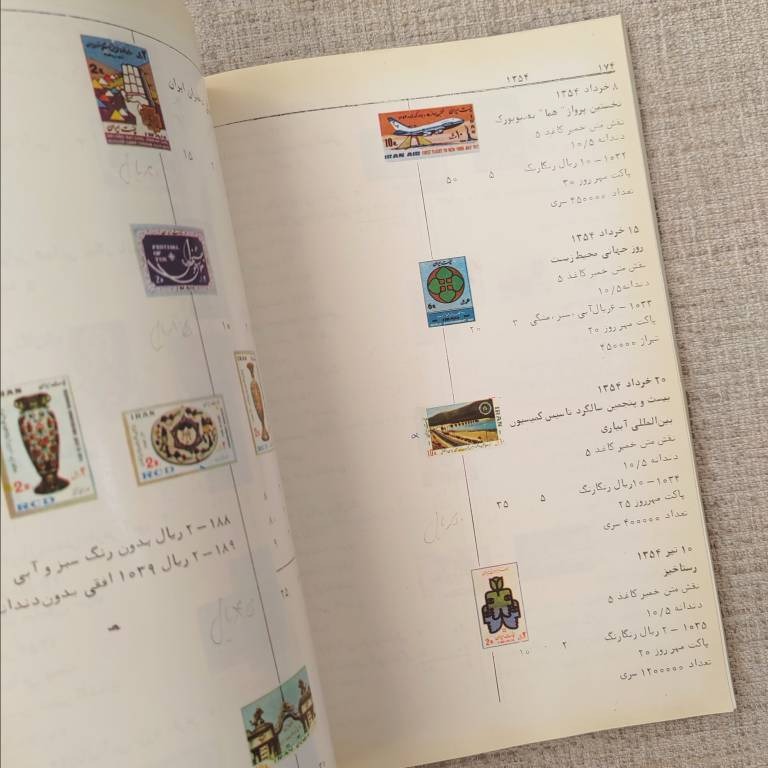 ۱۳۵۴
۱۷۴
۸ خرداد ۱۳۵۴
نخستین پرواز "هما" به نیویورک
نقش متن خمیر کاغذ ۵
دندانه ۱۰/۵
۱۰۳۲ – ۱۰ ریال رنگارنگ ۵ ۵۰
پاکت مهر روز ۳۰
تعداد ۴۵۰۰۰۰ سری
10R
IRAN AIR FIRST FLIGHT TO NEW YORK
۱۵ خرداد ۱۳۵۴
روز جهانی محیط زیست
نقش متن خمیر کاغذ ۵
دندانه ۱۰/۵
۱۰۳۳ – ۶ ریال آبی، سبز، مشکی ۳ ۲۰
پاکت مهر روز ۲۰
تیراژ ۴۵۰۰۰۰
6R
۲۰ خرداد ۱۳۵۴
بیست و پنجمین سالگرد تاسیس کمیسیون
بین‌المللی آبیاری
نقش متن خمیر کاغذ ۵
دندانه ۱۰/۵
۱۰۳۴ – ۱۰ ریال رنگارنگ ۵ ۳۵
پاکت مهر روز ۲۵
تعداد ۴۰۰۰۰۰ سری
IRAN
10R
۱۰ تیر ۱۳۵۴
رستاخیز
نقش متن خمیر کاغذ ۵
دندانه ۱۰/۵
۱۰۳۵ – ۲ ریال رنگارنگ ۲ ۱۰
پاکت مهر روز ۲۰
تعداد ۱۲۰۰۰۰۰ سری
2R
ایران
2R
IRAN
۱۵
FESTIVAL
OF TUS
۱۰
IRAN
2R
RCD
IRAN
2R
RCD
۱۸۸ – ۲ ریال بدون رنگ سبز و آبی
۱۸۹ – ۲ ریال ۱۰۳۹ افقی بدون دندانه
۲۵